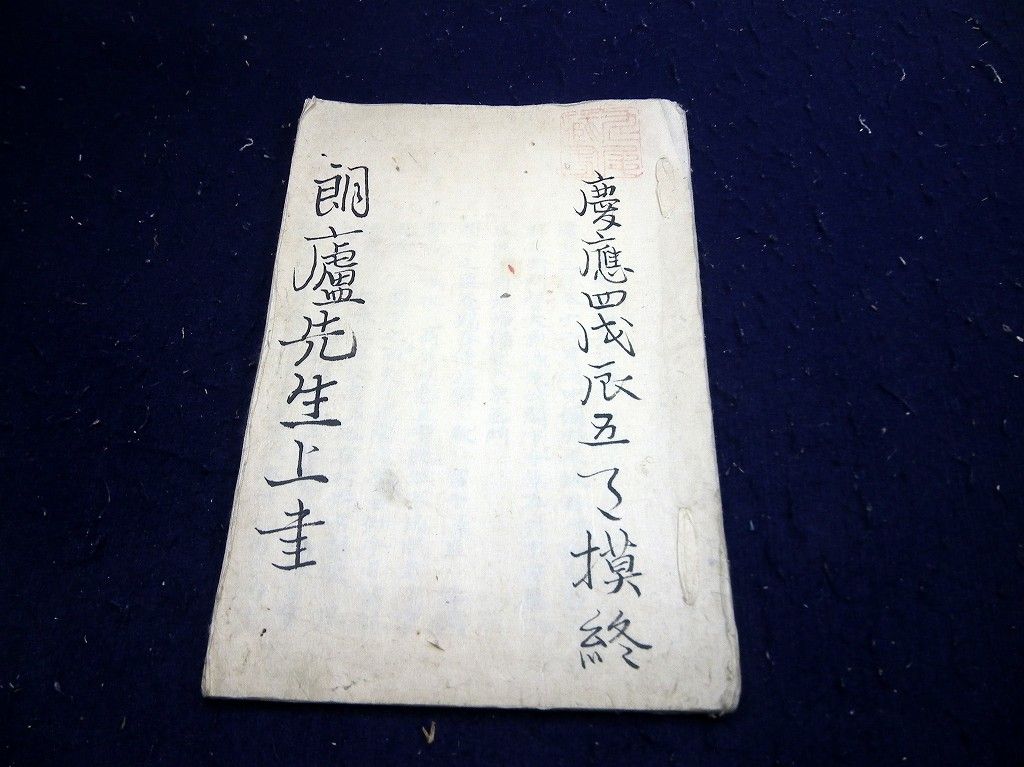 慶應四戊辰五月摸終
朗廬先生上書